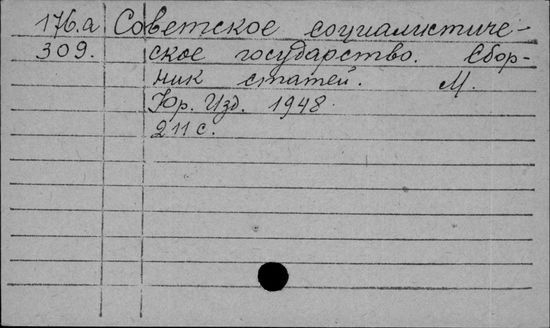 176.а Советское социалистиче-
309. ское государство. Сбор-
ник статей. М.
Юр. Изд. 1948
211 с.